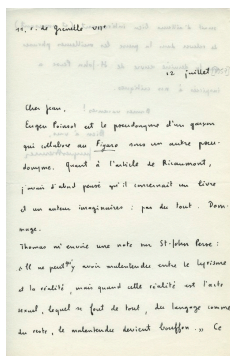 15, r. de Grenelle VIIe
12 juillet
Cher Jean,
Euger Poinsot est le pseudonyme d'un garçon
qui collabore au Figaro sous un autre pseu-
donyme. Quant à l'article de Ricaumont,
j'avais d'abord pensé qu'il concernait un livre
et un auteur imaginaires : pas du tout. Dom-
mage.
Thomas m'envoie une note sur St-John Perse :
« Il ne peut y avoir malentendu entre le lyrisme
et la réalité, mais quand cette réalité est l'acte
sexuel, lequel se fout de tout, du langage comme
du reste, le malentendu devient bouffon. » Ce